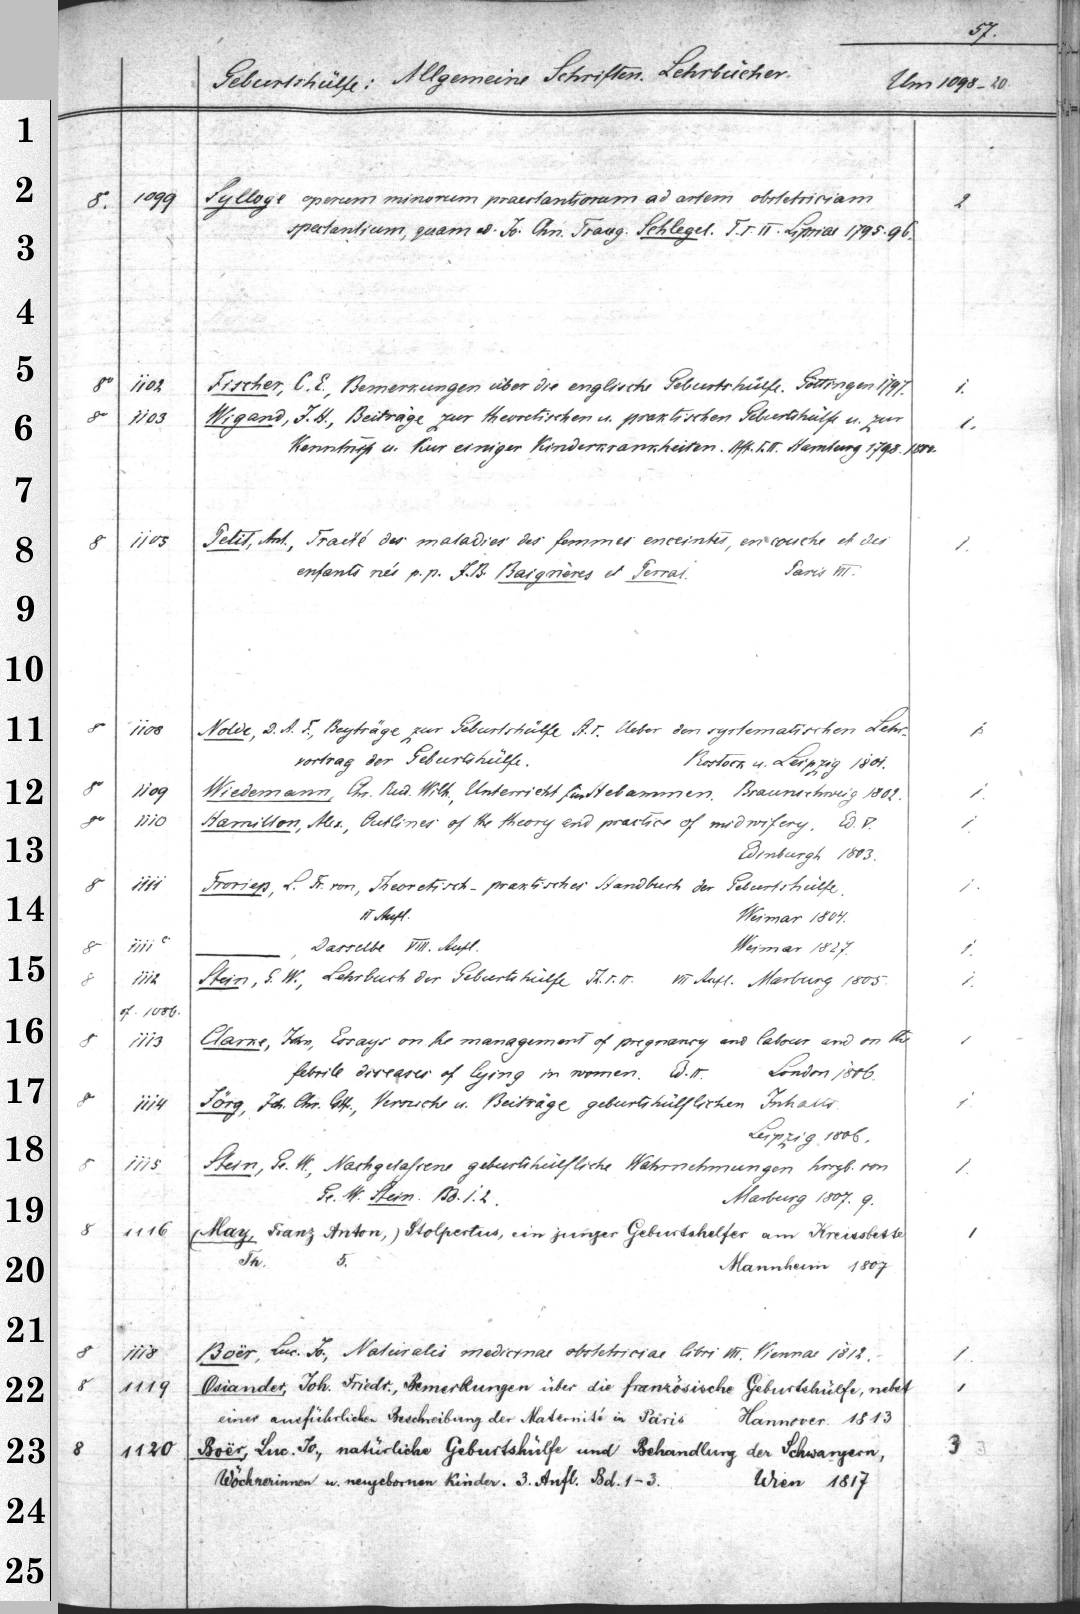 57.
Geburtshülfe: Allgemeine Schriften. Lehrbücher. Um 1098-20
1
2
8. 1099 Sylloge operum minorum praestantiorum ad artem obstetriciam 2
3
spectantium, quam ed. Jo. Chn. Traug. Schlegel. T. I. II. Lipsiae 1795. 96.
4
5
8° 1102 Fischer, C. E., Bemerkungen über die englische Geburtshülfe. Göttingen 1797. 1.
6
8° 1103 Wigand, J. H., Beiträge zur theoretischen u. praktischen Geburtshülfe u. zur 1.
Kenntniß u. Kur einiger Kinderkrankheiten. Hft. I. II. Hamburg 1798. 1800.
7
8
8 1105 Petit, Ant., Traité des maladies des femmes enceintes, en couche et des 1.
enfants nés p. p. J. B. Baignières et Perral. Paris VII.
9
10
11
8 1108 Nolde, D. A. F., Beyträge zur Geburtshülfe St. I. Ueber den systematischen Lehr- 1.
vortrag der Geburtshülfe. Rostock u. Leipzig 1801.
12
8 1109 Wiedemann, Chr. Rud. Wilh., Unterricht für Hebammen. Braunschweig 1802. 1.
8° 1110 Hamilton, Alex., Outlines of the theory and practice of midwifery. Ed. V. 1
13
Edinburgh 1803.
8 1111 Froriep, L. Fr. von, Theoretisch-praktisches Handbuch der Geburtshülfe. 1.
14
II Aufl. Weimar 1804.
8 1111 c ———, Dasselbe VIII. Aufl. Weimar 1827. 1.
15
8 1112 Stein, G. W., Lehrbuch der Geburtshülfe Th. I. II. VII Aufl. Marburg 1805. 1.
cf. 1086.
16
8 1113 Clarke, John, Essays on the management of pregnancy and labour and on the 1
febrile diseases of lying in women. Ed. II. London 1806.
17
8 1114 Jörg, Joh. Chr. Gttf., Versuche u. Beiträge geburtshülflichen Inhalts. 1
Leipzig 1806.
18
8 1115 Stein, G. W., Nachgelassene geburtshülfliche Wahrnehmungen hrsgb. von 1.
19
G. W. Stein. Bd. 1. 2. Marburg 1807. 9.
8 1116 (May, Franz Anton,) Stolpertus, ein junger Geburtshelfer am Kreissbette 1
20
Th. 5. Mannheim 1807
21
8 1118 Boër, Luc. Jo., Naturalis medicinae obstetriciae libri VII. Viennae 1812. 1.
22
8 1119 Osiander, Joh. Friedr., Bemerkungen über die französische Geburtshülfe, nebst 1
einer ausführlichen Beschreibung der Maternité in Paris Hannover. 1813
23
8 1120 Boër, Luc. Jo., natürliche Geburtshülfe und Behandlung der Schwangern, 3 3
Wöchnerinnen u. neugebornen Kinder. 3. Aufl. Bd. 1-3. Wien 1817
24
25